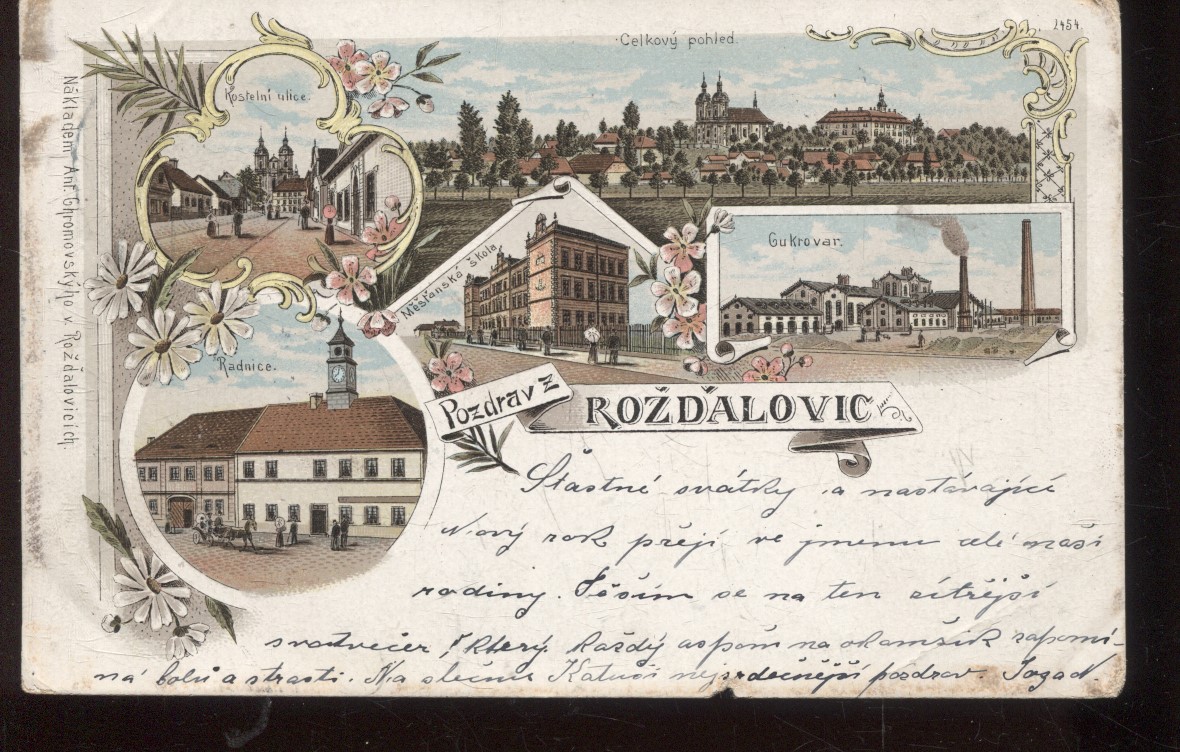 Celkový pohled.
2454
Kostelní ulice.
Nákladem Ant. Chromovského v Rožďalovicích.
Měšťanská škola
Cukrovar.
Radnice.
Pozdrav z
ROŽĎALOVIC
Šťastné svátky a nastávající
Nový rok přejí ve jménu celé naší
rodiny. Těším se na ten zítřejší
svatvečer, který každý aspoň na okamžik zapomí-
ná bolů a strastí. Na slečnu nejsrdečnější pozdrav.